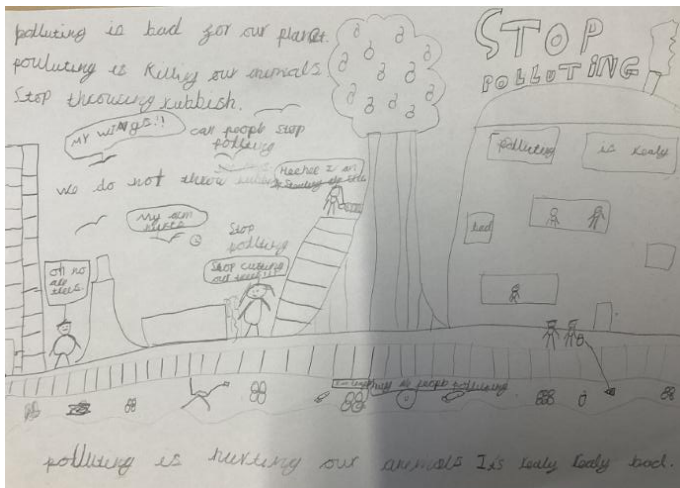 polluting is bad for our planet.
pouluting is Killing our animals.
Stop throwing rubbish.
STOP
POLLUTING
MY WINGS!!
can peopl stop
polluting
we do not throw
Heehee I am
My arm
Stop
polluting
Stop cutting
our trees!!!
oh no
all
trees.
polluting
is realy
bad
peopl polluting
polluting is hurting our animals It's realy realy bad.